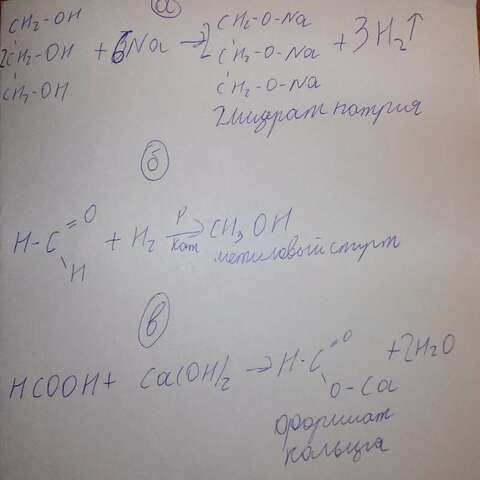 а
CH₂-OH CH₂-O-Na
2CH₂-OH + 6Na → 2 CH₂-O-Na + 3H₂↑
CH₂-OH CH₂-O-Na
глицерат натрия
б
H-C =O H + H₂ P кат → CH₃OH
метиловый спирт
в
HCOOH + Ca(OH)₂ → H-C =O O-Ca + 2H₂O
формиат
кальция